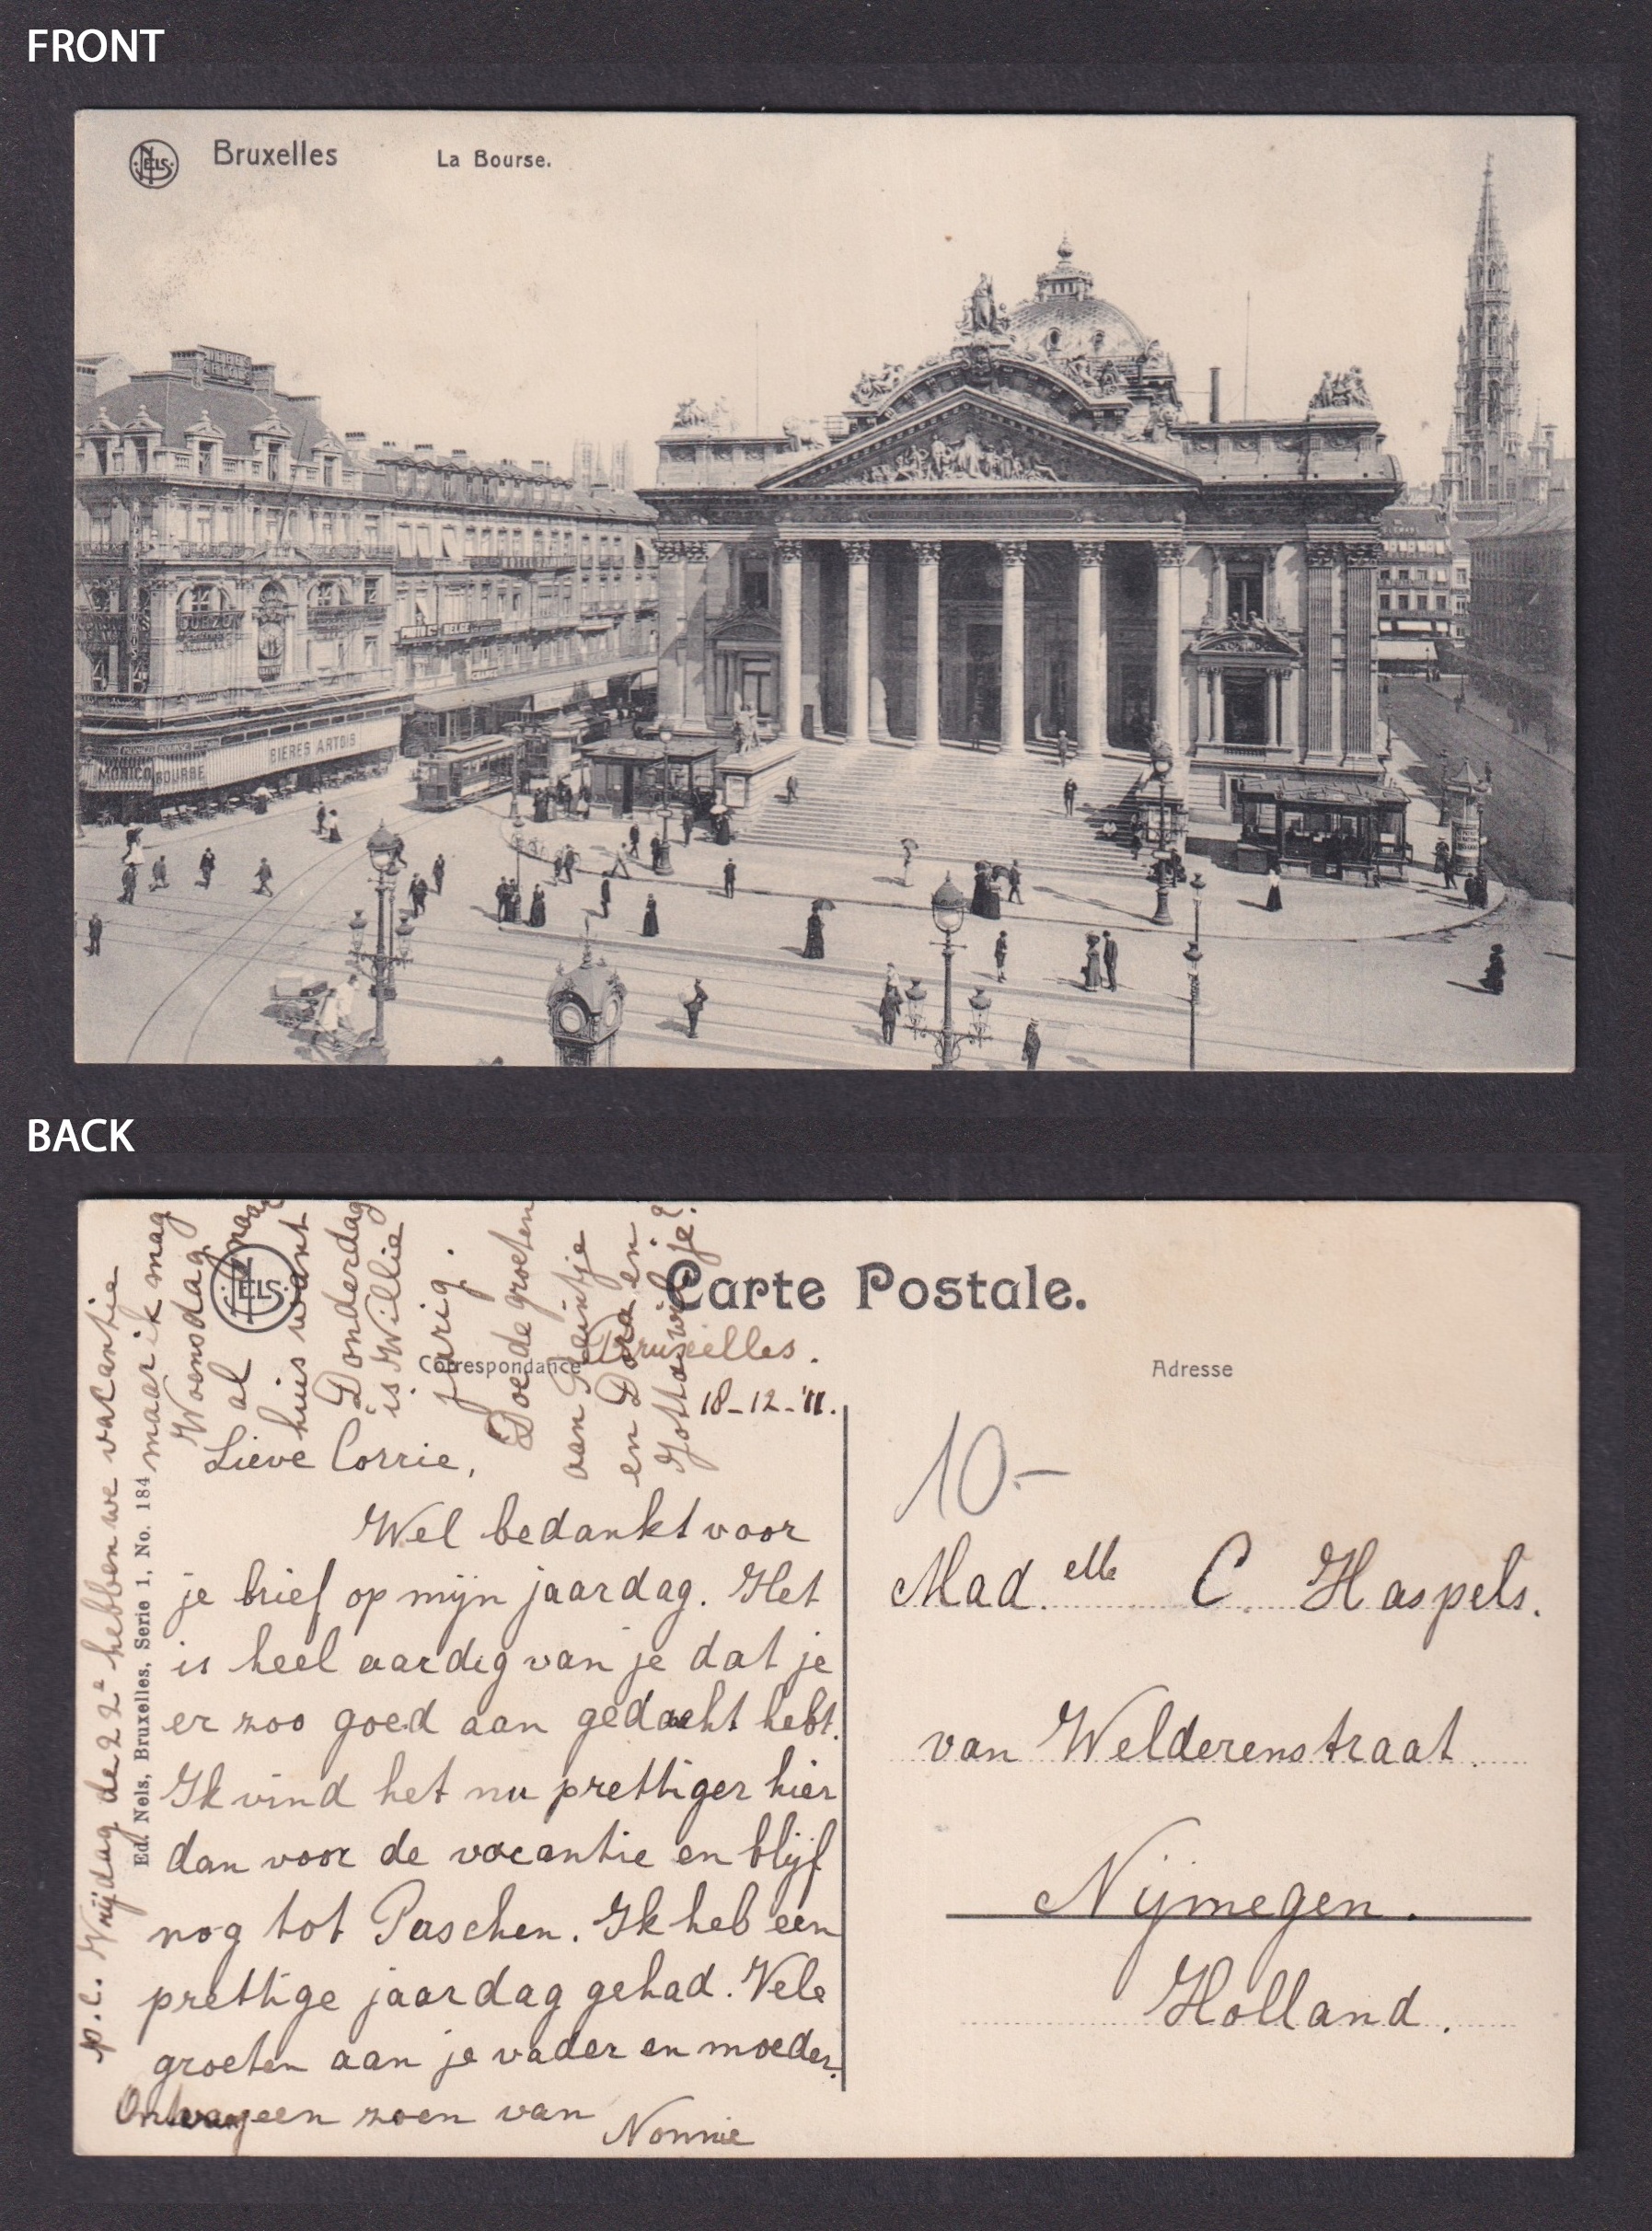 FRONT
NELS
Bruxelles La Bourse.
BIERES ARTOIS
MONICO BOURSE
BACK
NELS
Carte Postale.
Correspondance
Adresse
Bruxelles.
18-12-'11.
Lieve Corrie,
Wel bedankt voor
je brief op mijn jaardag. Het
is heel aardig van je dat je
er zoo goed aan gedacht hebt.
Ik vind het nu prettiger hier
dan voor de vacantie en blijf
nog tot Paschen. Ik heb een
prettige jaardag gehad. Vele
groeten aan je vader en moeder.
Ontvang een zoen van
Nonnie
p.s. Vrijdag de 22e hebben we vacantie
maar ik mag
Woensdag
al naar
huis want
Donderdag
is Willie
jarig.
Doe de groeten
aan
en Dora en
Jotta wil je?
Ed. Nels, Bruxelles, Serie 1, No. 184
10.-
Mad.elle C. Haspels.
van Welderenstraat
Nijmegen.
Holland.